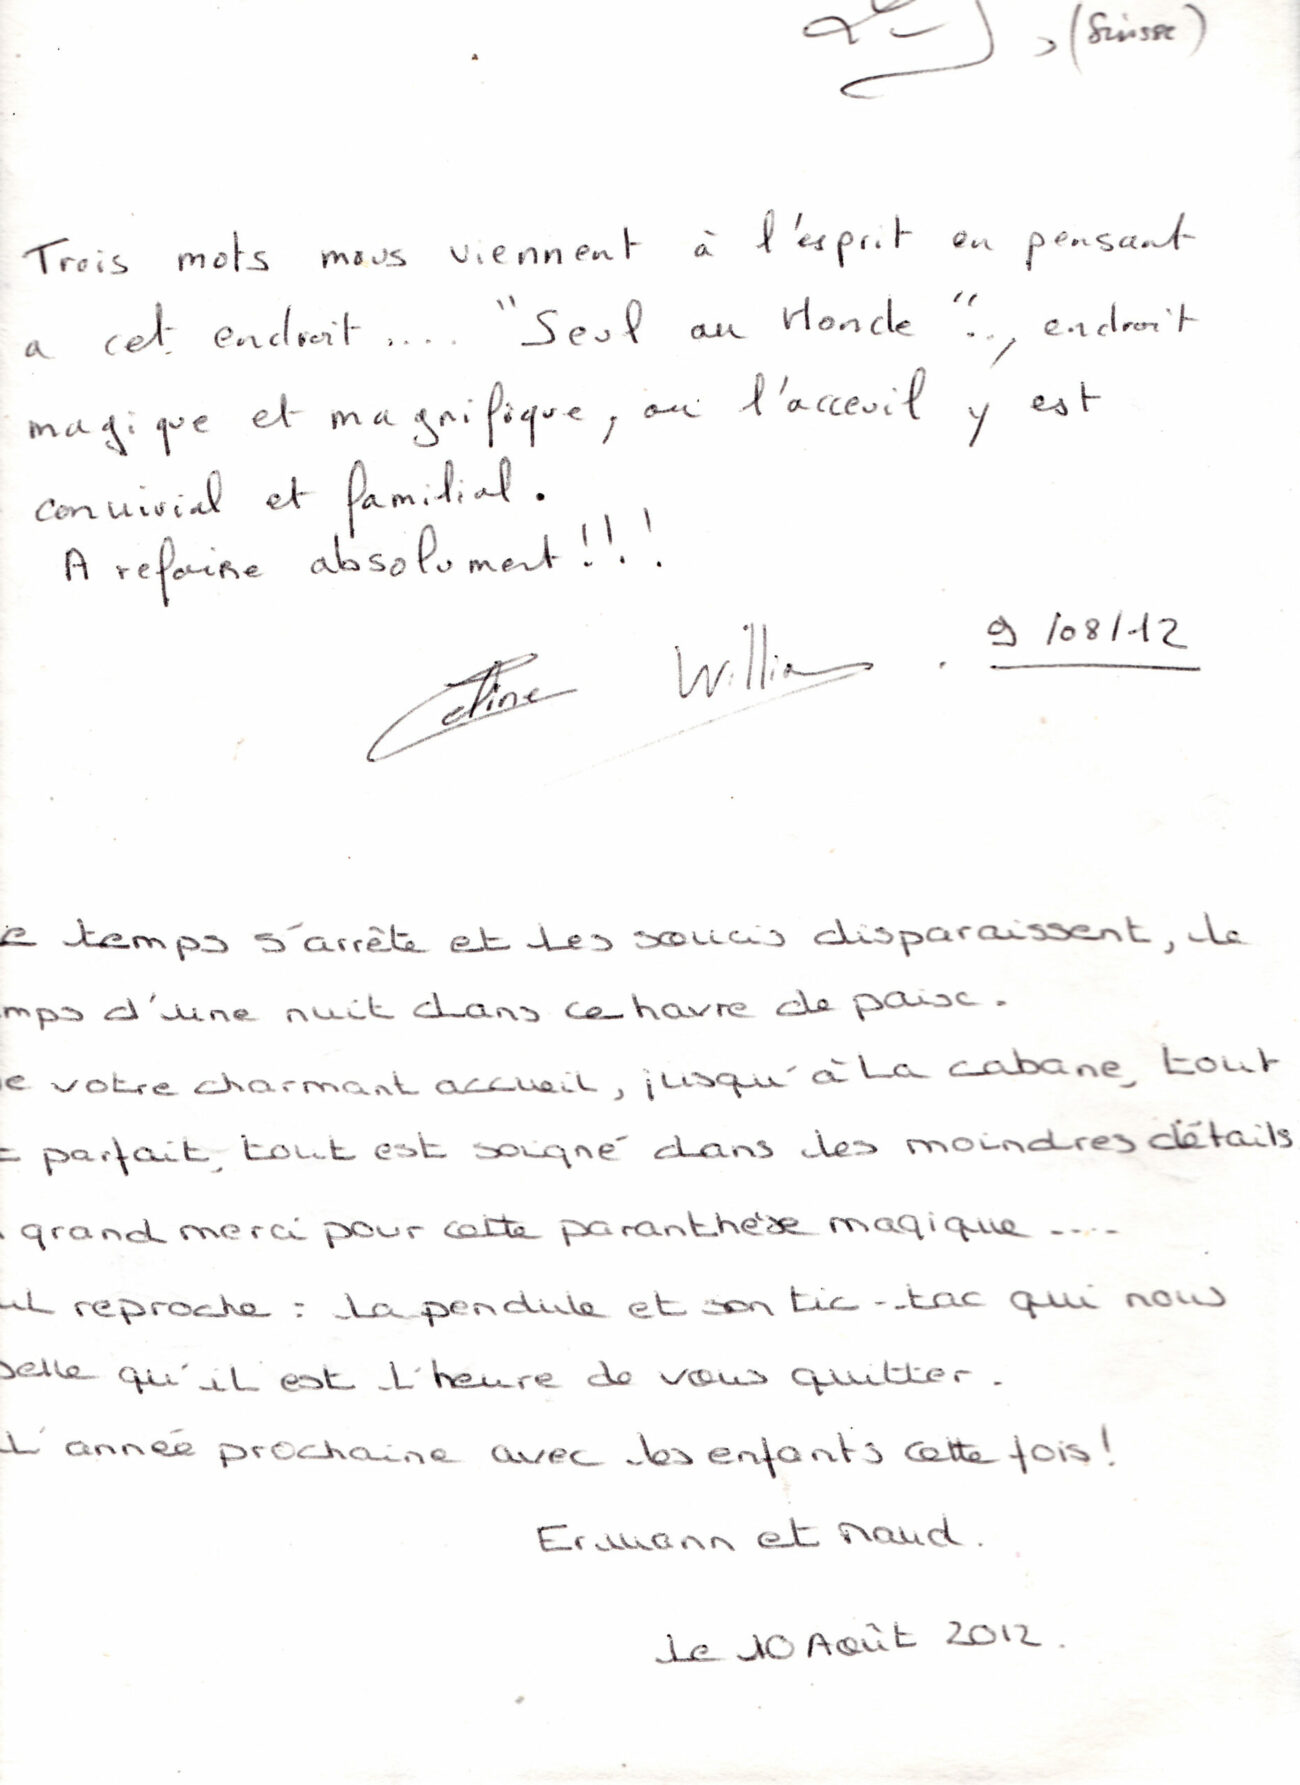 (Suisse)
Trois mots nous viennent à l'esprit en pensant
a cet endroit .... "Seul au Monde"..., endroit
magique et magnifique, ou l'acceuil y est
convivial et familial.
A refaire absolument !!!
Celine William. 9/08/12
e temps s'arrête et les soucis disparaissent, le
mps d'une nuit dans ce havre de paix.
e votre charmant accueil, jusqu'à la cabane, tout
t parfait, tout est soigné dans les moindres détails
grand merci pour cette paranthèse magique ....
ul reproche : la pendule et son tic-tac qui nous
pelle qu'il est l'heure de vous quitter.
l'année prochaine avec les enfants cette fois !
Ermann et Maud.
le 10 Août 2012.